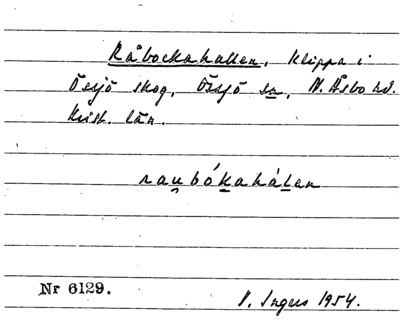 Råbockahallen, klippa i
Össjö skog, Össjö sn, N. Åsbo hd.
Krist. län.
raubókahálen
Nr 6129.
1954.